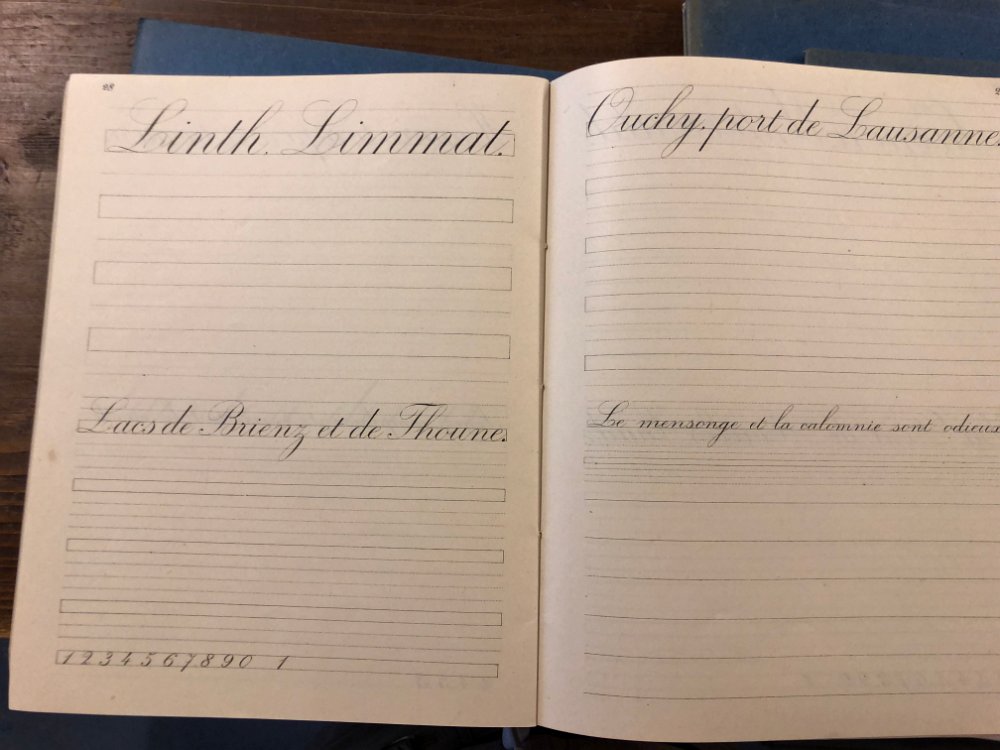 28
Linth. Limmat.
Lacs de Brienz et de Thoune.
1 2 3 4 5 6 7 8 9 0 1
Ouchy, port de Lausanne.
Le mensonge et la calomnie sont odieux